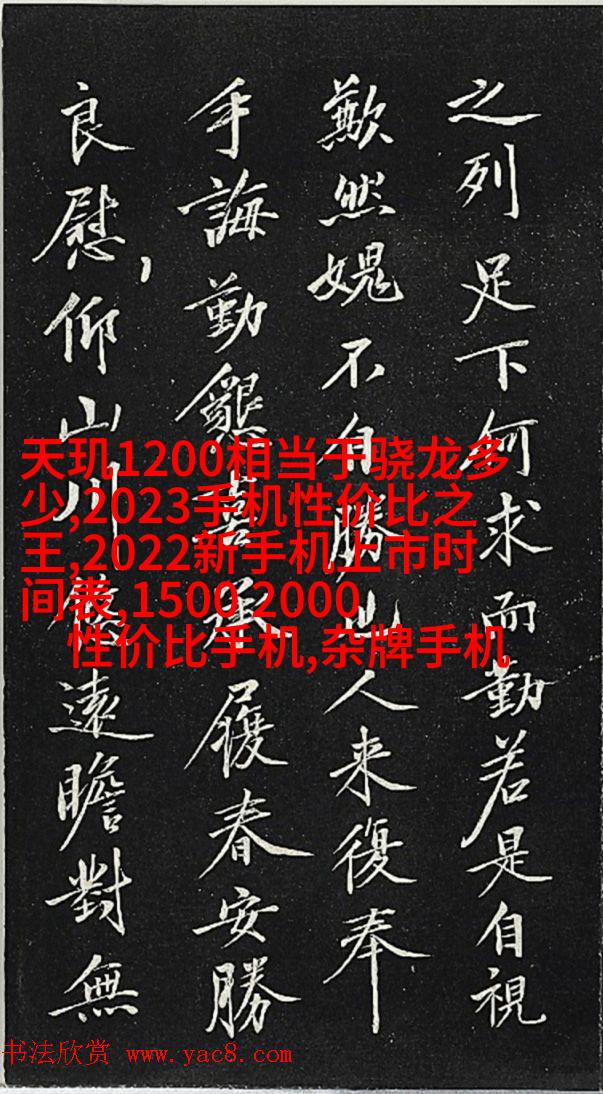 之列足下何求而勤若是自視
歉然媿不自勝也人来復奉
手誨勤懇承履春安勝
良慰仰山川遠瞻對無
天玑1200相当于骁龙多
少,2023手机性价比之
王,2022新手机上市时
间表,1500 2000
性价比手机,杂牌手机
书法欣赏 www.yac8.com